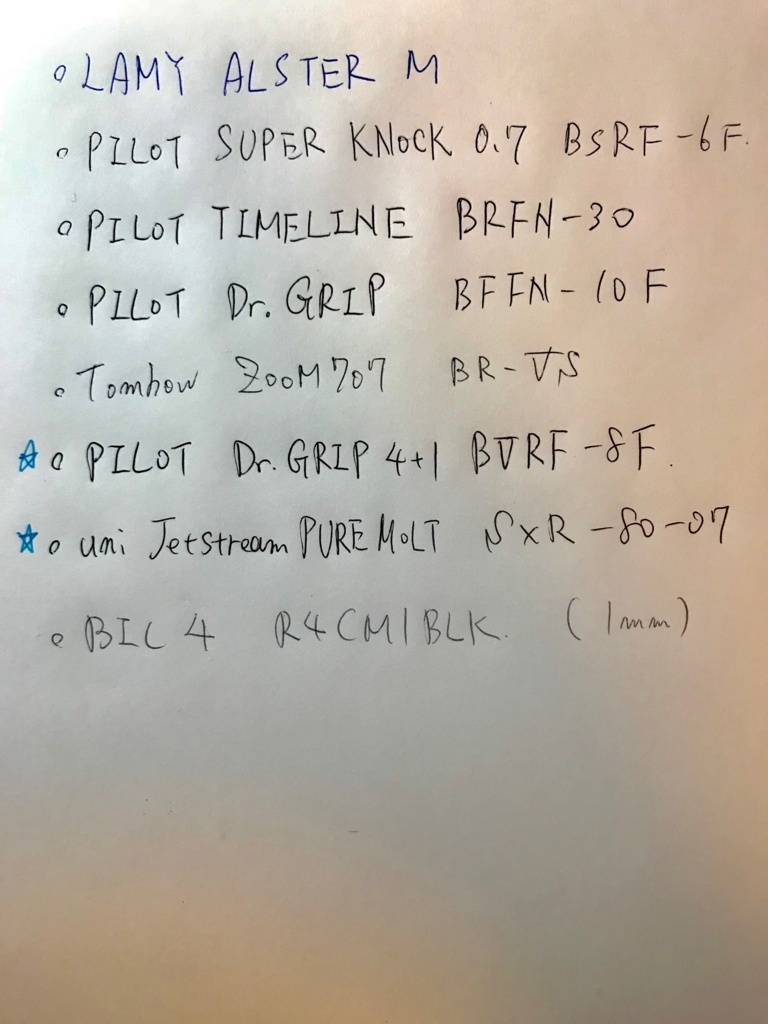 ◦ LAMY ALSTER M
◦ PILOT SUPER KNOCK 0.7 BSRF-6F.
◦ PILOT TIMELINE BRFN-30
◦ PILOT Dr. GRIP BFFN-10F
◦ Tombow ZOOM 707 BR-VS
☆ ◦ PILOT Dr. GRIP 4+1 BVRF-8F.
☆ ◦ uni Jetstream PURE MOLT SXR-80-07
◦ BIC 4 R4CM1BLK. (1mm)